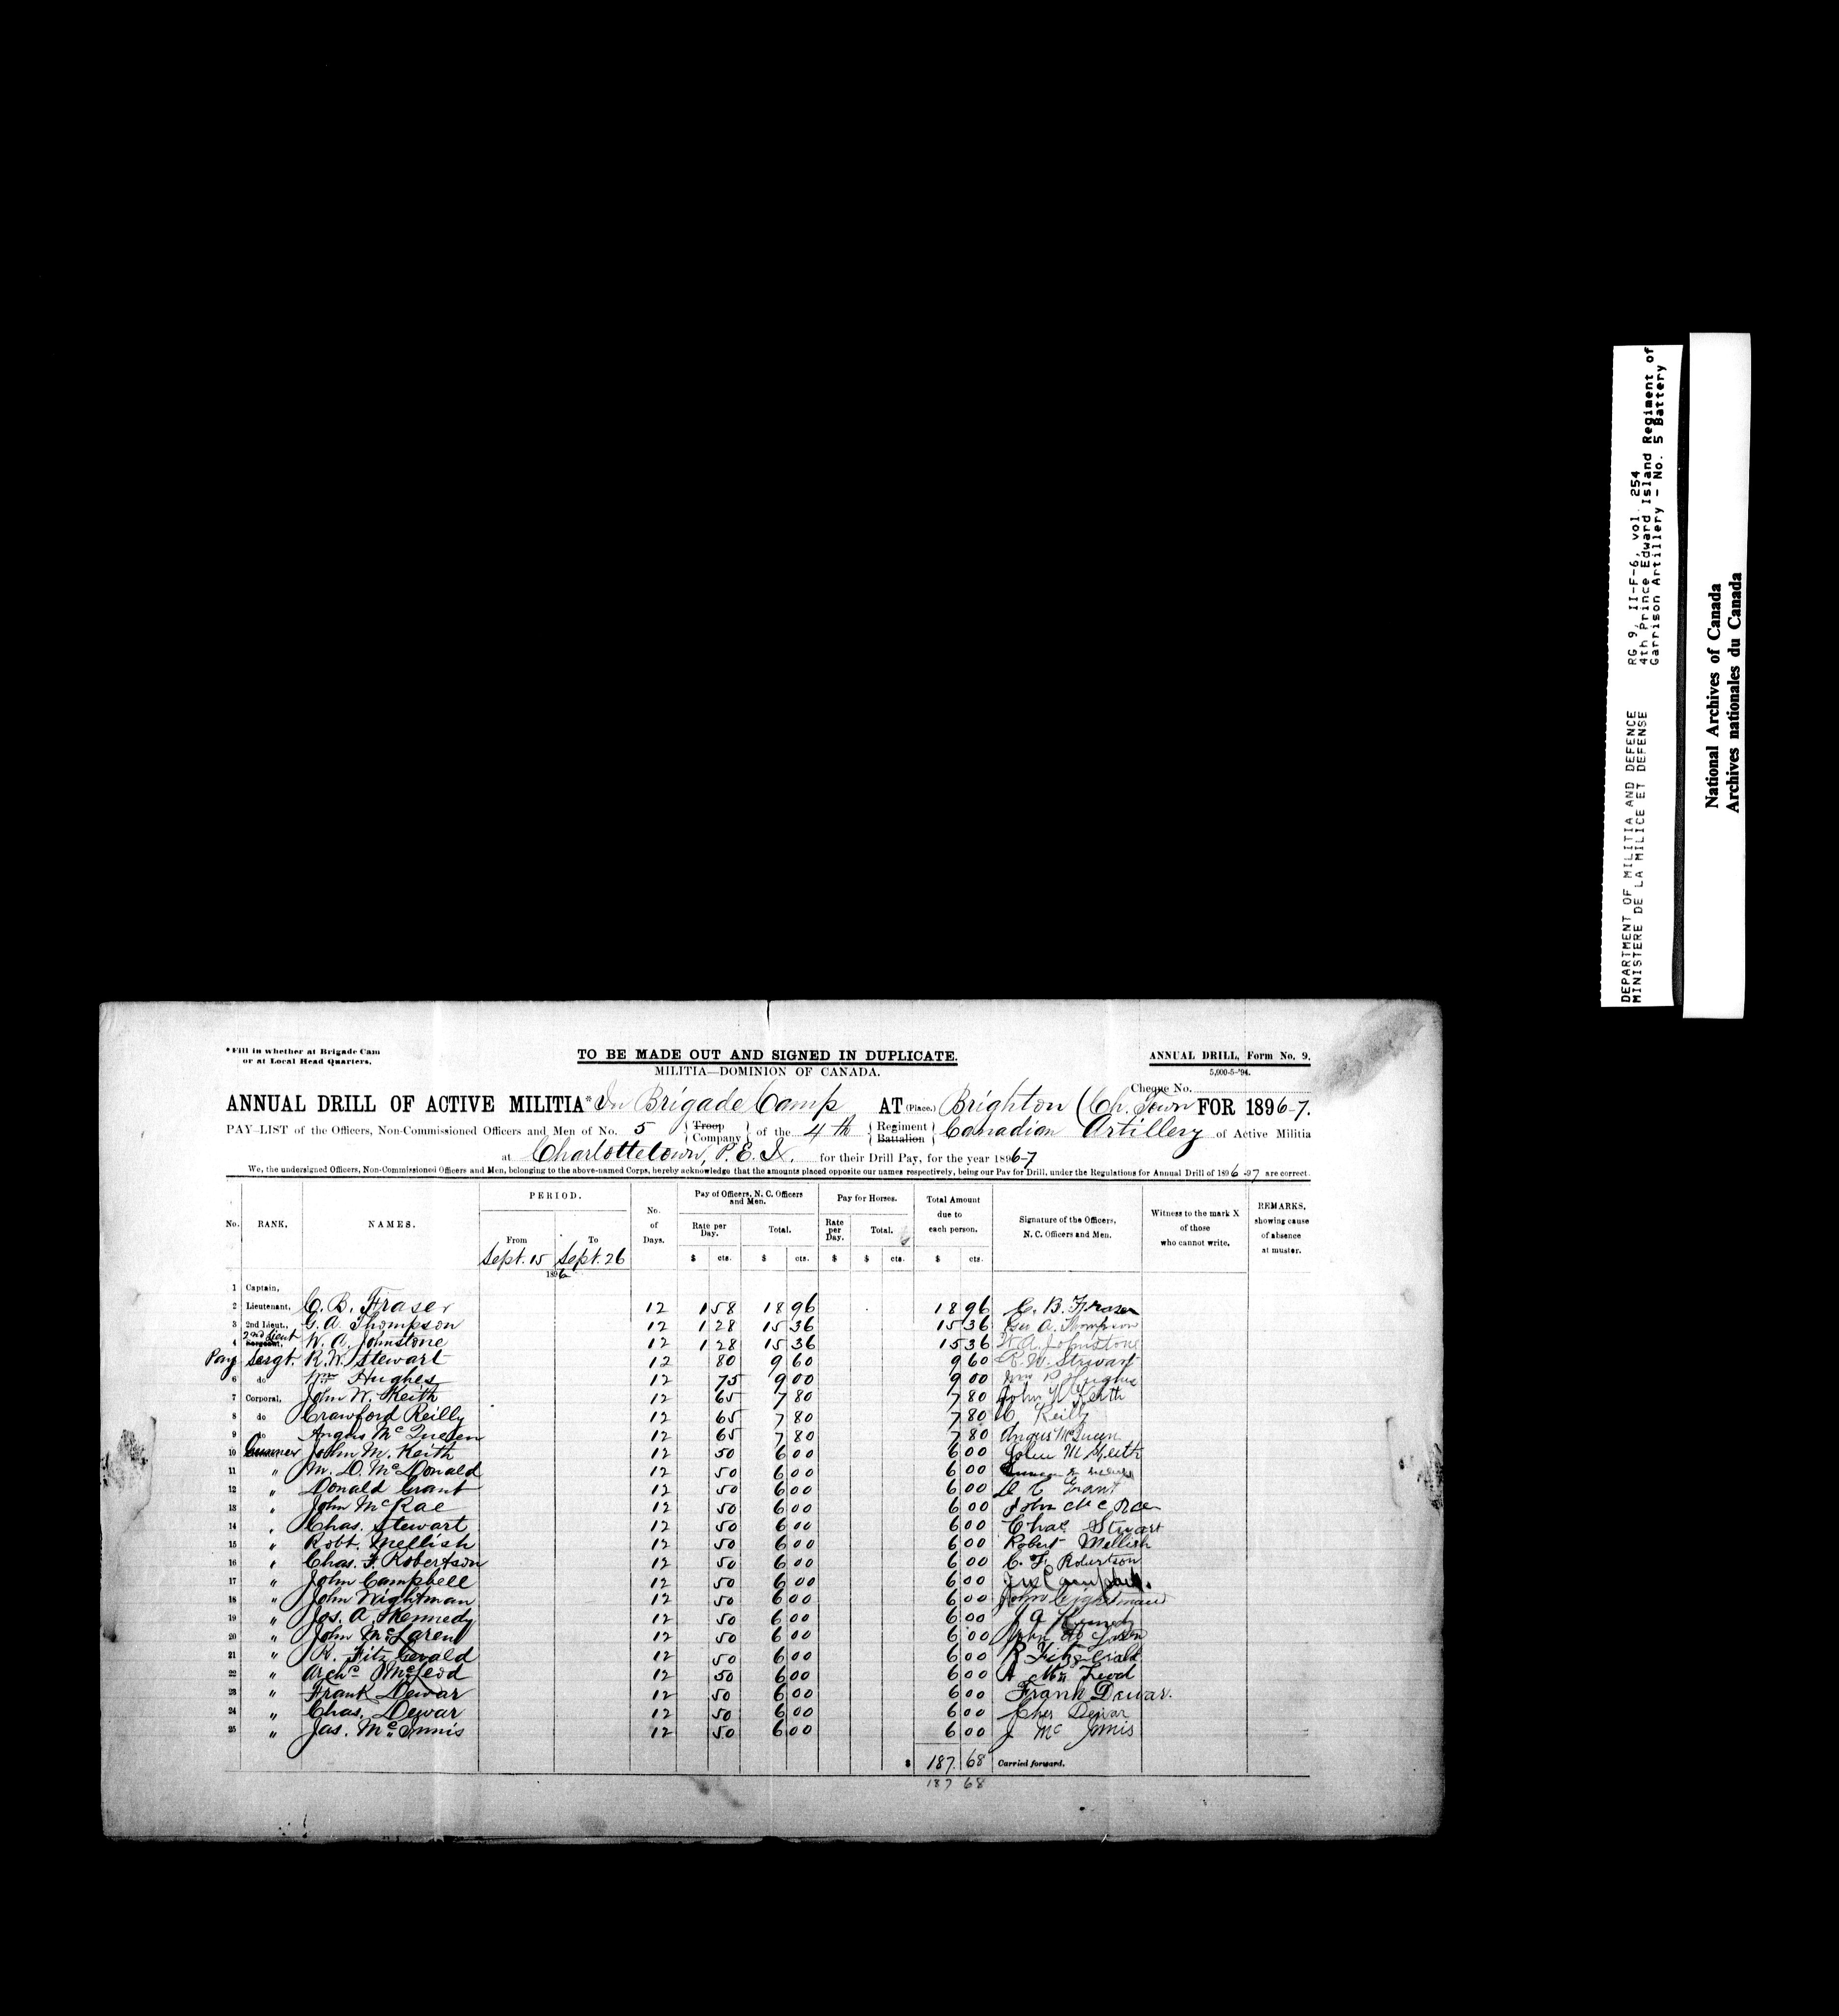 *Fill in whether at Brigade Cam
or at Local Head Quarters.
TO BE MADE OUT AND SIGNED IN DUPLICATE.
MILITIA—DOMINION OF CANADA.
ANNUAL DRILL, Form No. 9.
5,000-5-'94.
Cheque No.
ANNUAL DRILL OF ACTIVE MILITIA* In Brigade Camp AT (Place.) Brighton (Ch. Town FOR 1896-7.
PAY-LIST of the Officers, Non-Commissioned Officers and Men of No. 5 { Troop Company } of the 4th { Regiment Battalion } Canadian Artillery of Active Militia
at Charlottetown, P.E.I. for their Drill Pay, for the year 1896-7
We, the undersigned Officers, Non-Commissioned Officers and Men, belonging to the above-named Corps, hereby acknowledge that the amounts placed opposite our names respectively, being our Pay for Drill, under the Regulations for Annual Drill of 1896-97 are correct.
No. RANK. NAMES. PERIOD. From Sept. 15 To Sept. 26 1896 No. of Days. Pay of Officers, N. C. Officers and Men. Rate per Day. $ cts. Total. $ cts. Pay for Horses. Rate per Day. $ Total. $ cts. Total Amount due to each person. $ cts. Signature of the Officers, N. C. Officers and Men. Witness to the mark X of those who cannot write. REMARKS, showing cause of absence at muster.
1 Captain,
2 Lieutenant, C. B. Fraser 12 1 58 18 96 18 96 C. B. Fraser
3 2nd Lieut., G. A. Thompson 12 1 28 15 36 15 36 Geo A. Thompson
4 2nd Lieut Sergeant, W. A. Johnstone 12 1 28 15 36 15 36 W. A. Johnstone
Pay Sergt. R. W. Stewart 12 80 9 60 9 60 R. W. Stewart
6 do Wm Hughes 12 75 9 00 9 00 Wm P Hughes
7 Corporal, John W. Keith 12 65 7 80 7 80 John W Keith
8 do Crawford Reilly 12 65 7 80 7 80 C Reilly
9 do Angus McQueen 12 65 7 80 7 80 Angus McQueen
10 Gunner John M. Keith 12 50 6 00 6 00 John M Keith
11 " M. D. McDonald 12 50 6 00 6 00
12 " Donald Grant 12 50 6 00 6 00 D C Grant
13 " John McRae 12 50 6 00 6 00 John McRae
14 " Chas. Stewart 12 50 6 00 6 00 Chas Stewart
15 " Robt. Mellish 12 50 6 00 6 00 Robert Mellish
16 " Chas. F. Robertson 12 50 6 00 6 00 C. F. Robertson
17 " John Campbell 12 50 6 00 6 00 Campbell.
18 " John Wightman 12 50 6 00 6 00 John Wightman
19 " Jos. A. Kennedy 12 50 6 00 6 00 J A Kennedy
20 " John McLaren 12 50 6 00 6 00 John McLaren
21 " R. FitzGerald 12 50 6 00 6 00 R Fitzgerald
22 " Archd McLeod 12 50 6 00 6 00 A McLeod
23 " Frank Dewar 12 50 6 00 6 00 Frank Dewar.
24 " Chas. Dewar 12 50 6 00 6 00 Chas Dewar
25 " Jas. McInnis 12 50 6 00 6 00 J McInnis
$ 187 68 Carried forward.
187 68
DEPARTMENT OF MILITIA AND DEFENCE
MINISTERE DE LA MILICE ET DEFENSE
RG 9, II-F-6, vol. 254
4th Prince Edward Island Regiment of
Garrison Artillery - No. 5 Battery
National Archives of Canada
Archives nationales du Canada